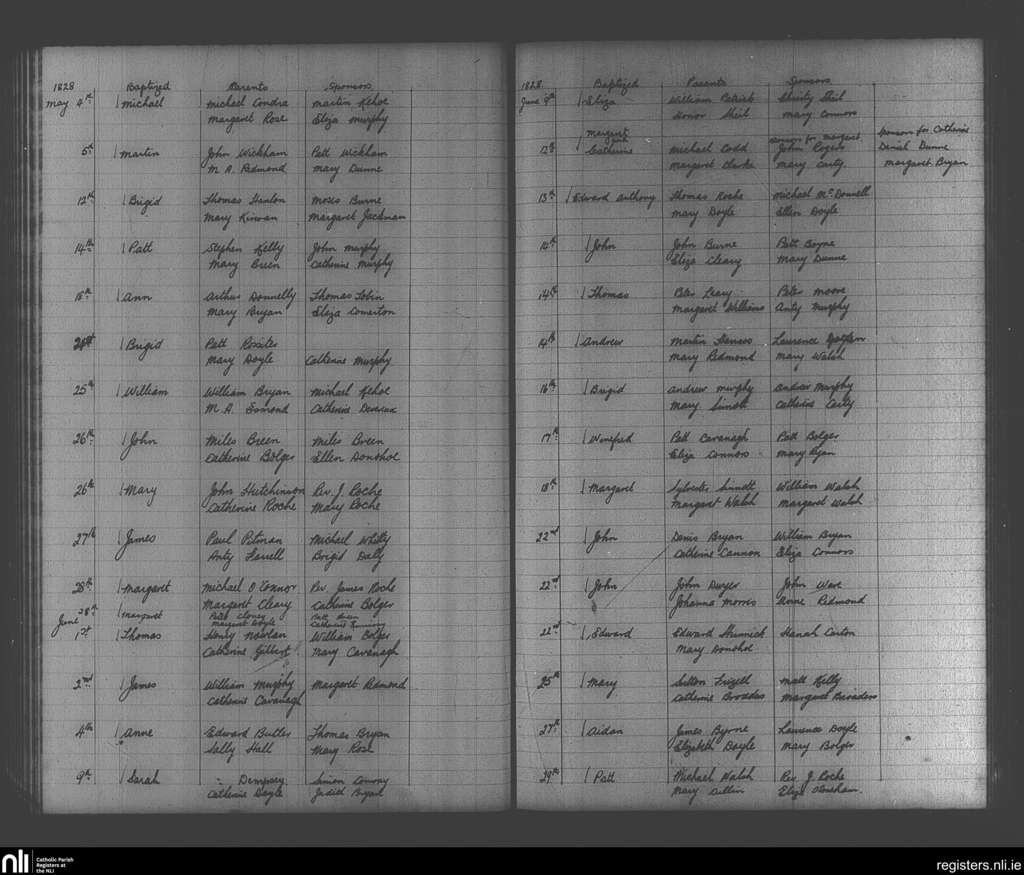 1828 Baptized Parents Sponsors
May 4th Michael Michael Condra Martin Kehoe
Margaret Rose Eliza Murphy
5th Martin John Wickham Patt Wickham
M. A. Redmond Mary Dunne
12th Brigid Thomas Hanlon Moses Burne
Mary Kirwan Margaret Jackman
14th Patt Stephen Kelly John Murphy
Mary Breen Catherine Murphy
15th Ann Arthur Donnelly Thomas Tobin
Mary Bryan Eliza Comerton
Brigid Patt Rossiter
Mary Doyle Catherine Murphy
25th William William Bryan Michael Kehoe
M. A. Esmond Catherine Devereux
26th John Miles Breen Miles Breen
Catherine Bolger Ellen Donohoe
26th Mary John Hutchinson Rev. J. Roche
Catherine Roche Mary Roche
27th James Paul Pitman Michael Whitty
Anty Farrell Brigid Dally
28th Margaret Michael O'Connor Rev James Roche
Margaret Cleary Catherine Bolger
28th Margaret Peter Cloney Patt Breen
Margaret Doyle Catherine
June 1st Thomas Henry Nowlan William Bolger
Catherine Gilbert Mary Cavanagh
2nd James William Murphy Margaret Redmond
Catherine Cavanagh
4th Anne Edward Butler Thomas Bryan
Sally Hall Mary Rose
9th Sarah Dempsey Simon Conroy
Catherine Doyle Judith Bryan
1828 Baptized Parents Sponsors
June 9th Eliza William Patrick Christy Sheil
Honor Sheil Mary Connors
12th Margaret and Catherine Michael Codd sponsors for Margaret John Rogers Sponsors for Catherine Daniel Dunne
Margaret Clarke Mary Carty Margaret Bryan
13th Edward Anthony Thomas Roche Michael McDonnell
Mary Doyle Ellen Doyle
14th John John Burne Patt Boyne
Eliza Cleary Mary Dunne
14th Thomas Peter Leary Peter Moore
Margaret Williams Anty Murphy
14th Andrew Martin Laurence
Mary Redmond Mary Walsh
16th Brigid Andrew Murphy Andrew Murphy
Mary Sinott Catherine Carty
17th Winefred Patt Cavanagh Patt Bolger
Eliza Connors Mary Ryan
18th Margaret Sylvester Sinnott William Walsh
Margaret Walsh Margaret Walsh
22nd John Denis Bryan William Bryan
Catherine Cannon Eliza Connors
22nd John John Dwyer John Ware
Johanna Morris Anne Redmond
22nd Edward Edward Hanah Carton
Mary Donohoe
25th Mary Sutton Frizell Matt Kelly
Catherine Broaders Margaret Broaders
27th Aidan James Byrne Laurence Doyle
Elizabeth Doyle Mary Bolger
29th Patt Michael Walsh Rev. J. Roche
Mary Cullin Eliza
nli Catholic Parish
Registers at
the NLI
registers.nli.ie